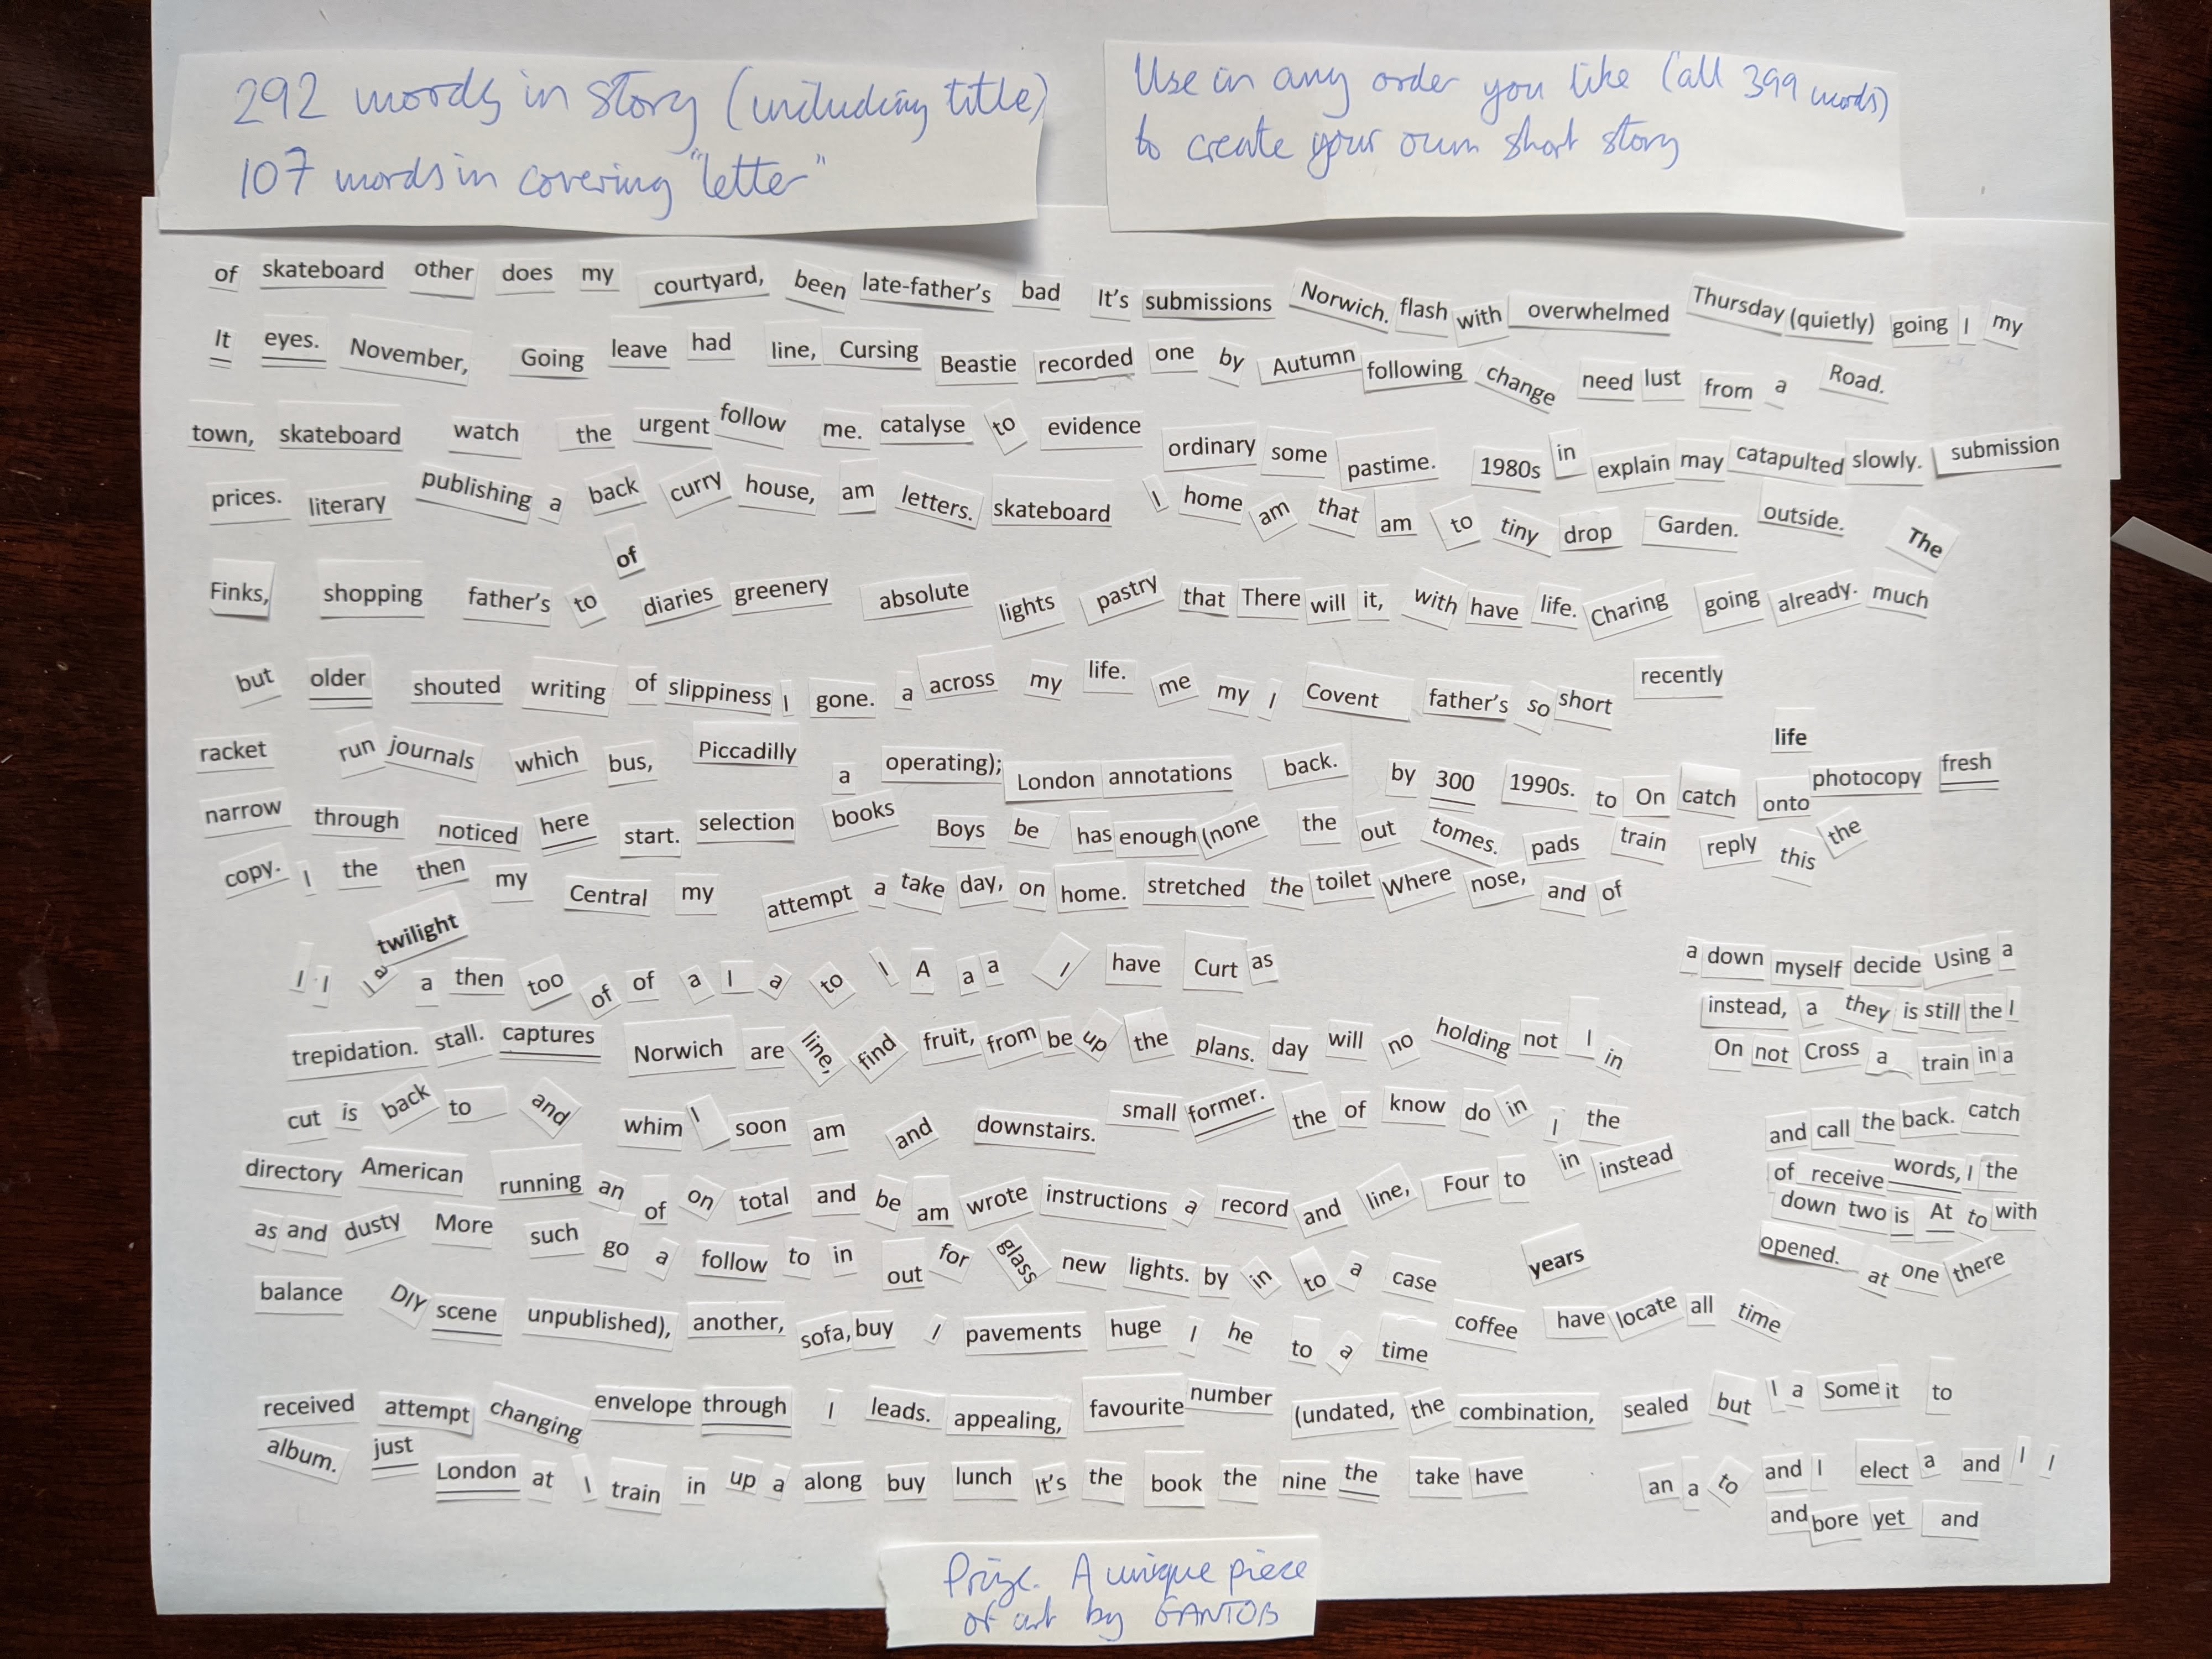 292 words in story (including title)
107 words in covering "letter"
Use in any order you like (all 399 words)
to create your own short story
of skateboard other does my courtyard, been late-father's bad It's submissions Norwich. flash with overwhelmed Thursday (quietly) going I my
It eyes. November, Going leave had line, Cursing Beastie recorded one by Autumn following change need lust from a Road.
town, skateboard watch the urgent follow me. catalyse to evidence ordinary some pastime. 1980s in explain may catapulted slowly. submission
prices. literary publishing a back curry house, am letters. skateboard I home am that am to tiny drop Garden. outside. The
of
Finks, shopping father's to diaries greenery absolute lights pastry that There will it, with have life. Charing going already. much
but older shouted writing of slippiness I gone. a across my life. me my I Covent father's so short recently
life
racket run journals which bus, Piccadilly a operating); London annotations back. by 300 1990s. to On catch onto photocopy fresh
narrow through noticed here start. selection books Boys be has enough (none the out tomes. pads train reply this the
copy. I the then my Central my attempt a take day, on home. stretched the toilet Where nose, and of
twilight
I I I a a then too of of a I a to I A a a I have Curt as
a down myself decide Using a
instead, a they is still the I
trepidation. stall. captures Norwich are line, find fruit, from be up the plans. day will no holding not I in
On not Cross a train in a
cut is back to and whim I soon am and downstairs. small former. the of know do in I the
and call the back. catch
directory American running an of on total and be am wrote instructions a record and line, Four to in instead
of receive words, I the
as and dusty More such go a follow to in out for glass new lights. by in to a case years
down two is At to with
opened. at one there
balance DIY scene unpublished), another, sofa, buy I pavements huge I he to a time coffee have locate all time
received attempt changing envelope through I leads. appealing, favourite number (undated, the combination, sealed but I a Some it to
album. just London at I train in up a along buy lunch It's the book the nine the take have an a to and I elect a and I I
and bore yet and
Prize. A unique piece
of art by GANTOB